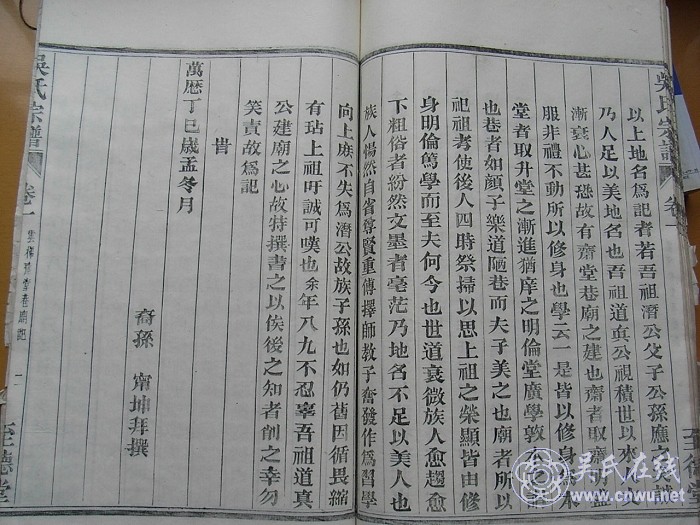 吳氏宗譜
卷一
以上地名爲記者若吾祖潛公父子公孫應之矣
乃人足以美地名也吾祖道眞公視積世以來人
漸衰心甚恐故有齋堂巷廟之建也齋者取齋明盛
服非禮不動所以修身也學云一是皆以修身爲本
堂者取升堂之漸進猶庠之明倫堂廣學敦
也巷者如顏子樂道陋巷而夫子美之也廟者所以
祀祖考使後人四時祭掃以思上祖之榮顯皆由修
身明倫篤學而至夫何今也世道衰微族人愈趨愈
下粗俗者紛然文墨者毫茫乃地名不足以美人也
族人惕然自省尊賢重傳擇師教子奮發作爲習學
向上庶不失爲潛公故族子孫也如仍舊因循畏縮
有玷上祖吁誠可嘆也余年八九不忍辜吾祖道真
公建廟之心故特撰書之以俟後之知者削之幸勿
笑責故爲記
旹
萬厯丁巳歲孟冬月
裔孫 甯坤拜撰
吳氏宗譜
卷一
至德堂
吴氏在线
www.cnwu.net